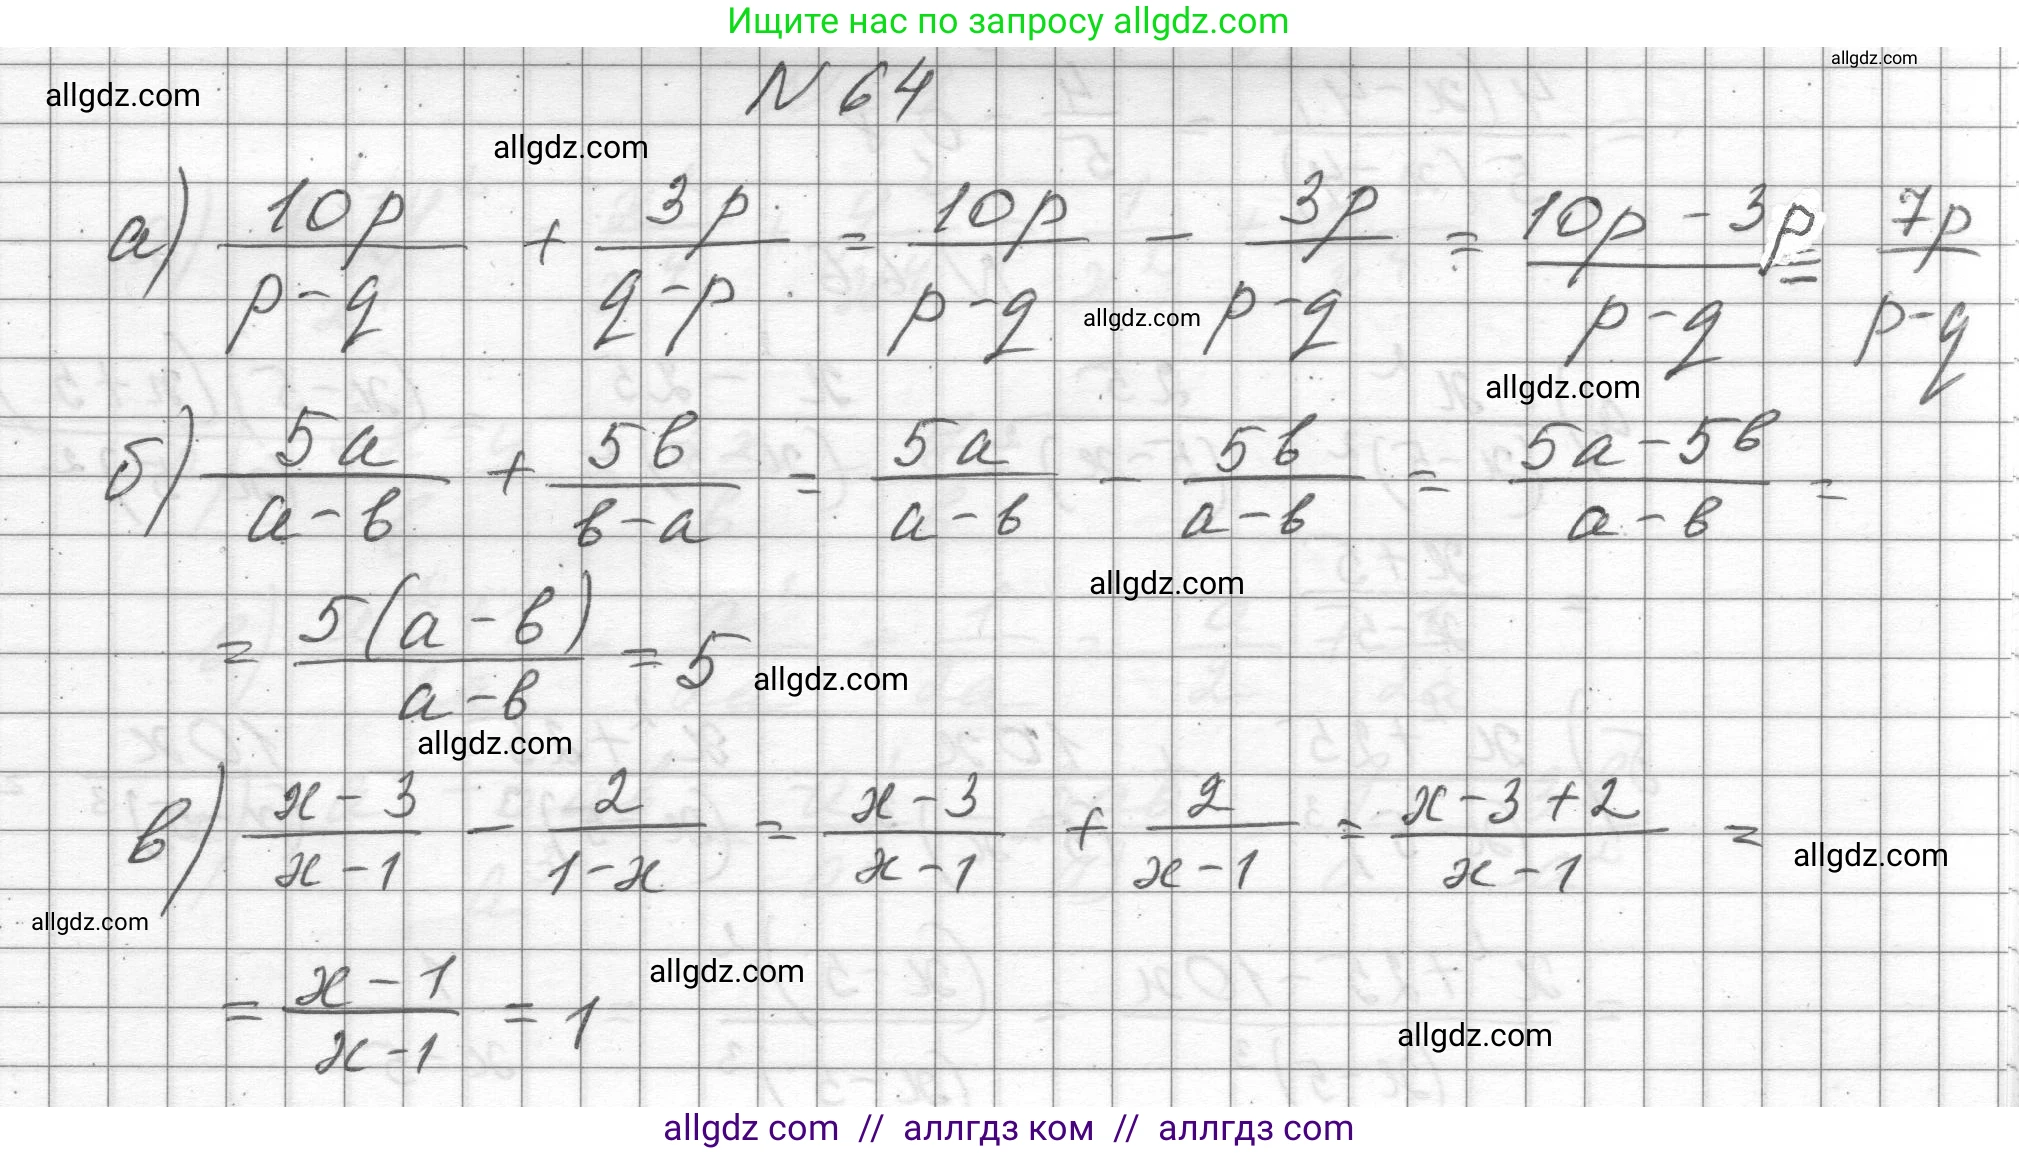 Ищите нас по запросу allgdz.com
allgdz.com
allgdz.com
N 64
allgdz.com
а) 10p/(p-q) + 3p/(q-p) = 10p/(p-q) - 3p/(p-q) = (10p-3p)/(p-q) = 7p/(p-q)
allgdz.com
allgdz.com
б) 5a/(a-в) + 5в/(в-a) = 5a/(a-в) - 5в/(a-в) = (5a-5в)/(a-в) =
allgdz.com
= 5(a-в)/(a-в) = 5
allgdz.com
allgdz.com
в) (x-3)/(x-1) - 2/(1-x) = (x-3)/(x-1) + 2/(x-1) = (x-3+2)/(x-1) =
allgdz.com
allgdz.com
= (x-1)/(x-1) = 1
allgdz.com
allgdz.com
allgdz com // аллгдз ком // аллгдз com